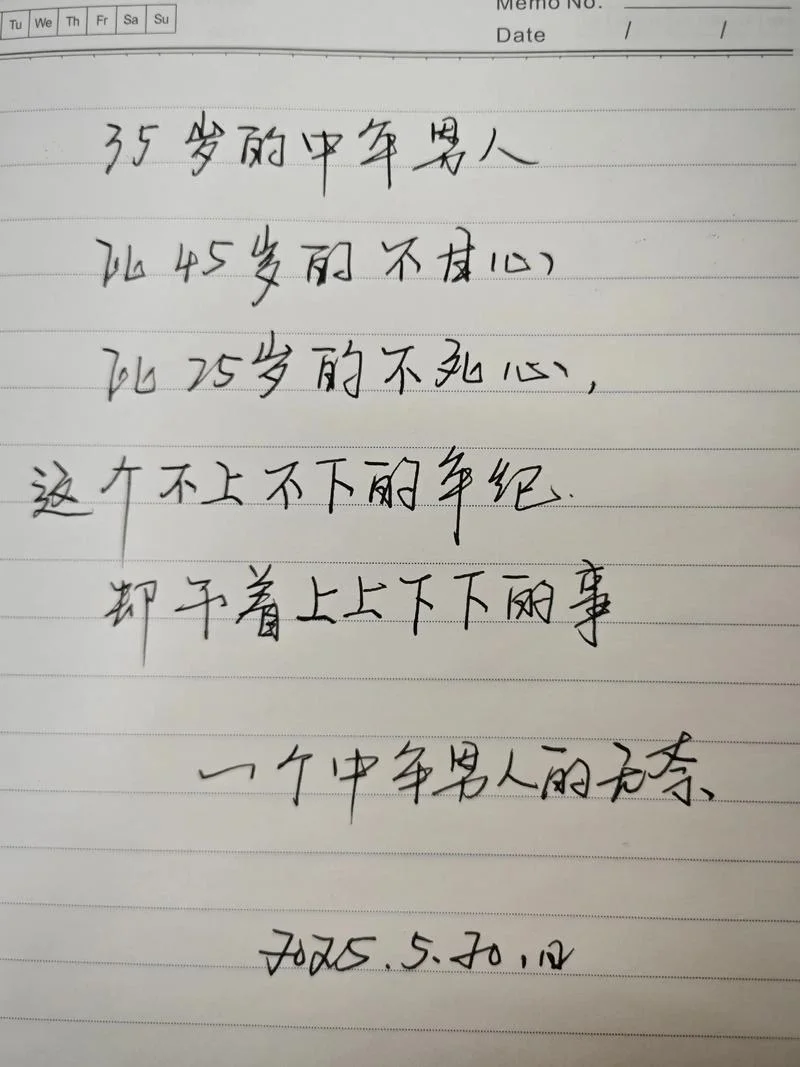 Tu We Th Fr Sa Su
Memo No.
Date / /
35岁的中年男人
比45岁的不甘心
比25岁的不死心,
这个不上不下的年纪.
却干着上上下下的事
一个中年男人的无奈、
2025.5.20.日